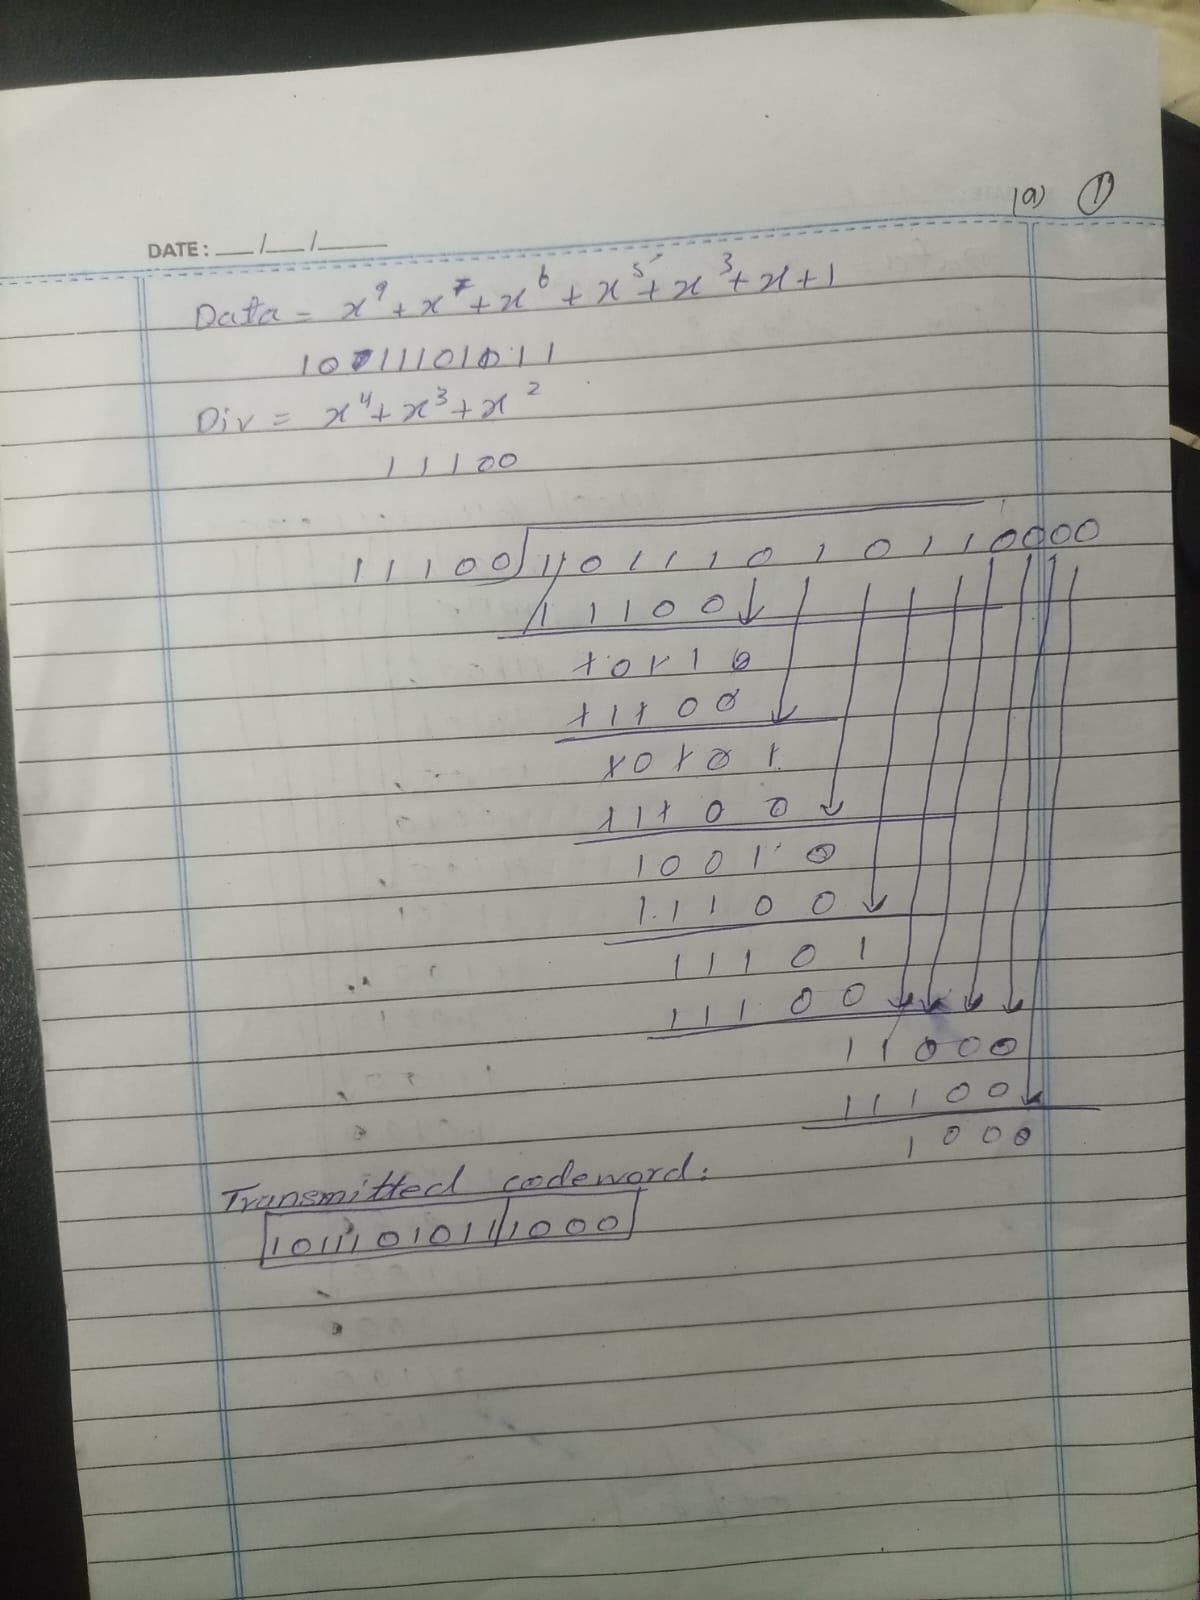 1a) ①
DATE: __/__/____
Data = x⁹ + x⁷ + x⁶ + x⁵ + x³ + x + 1
1011101011
Div = x⁴ + x³ + x²
11100
11100 1011101011 0000
11100
10110
11100
10101
11100
10010
11100
11101
11100
11000
11100
1000
Transmitted codeword:
1011101011 1000